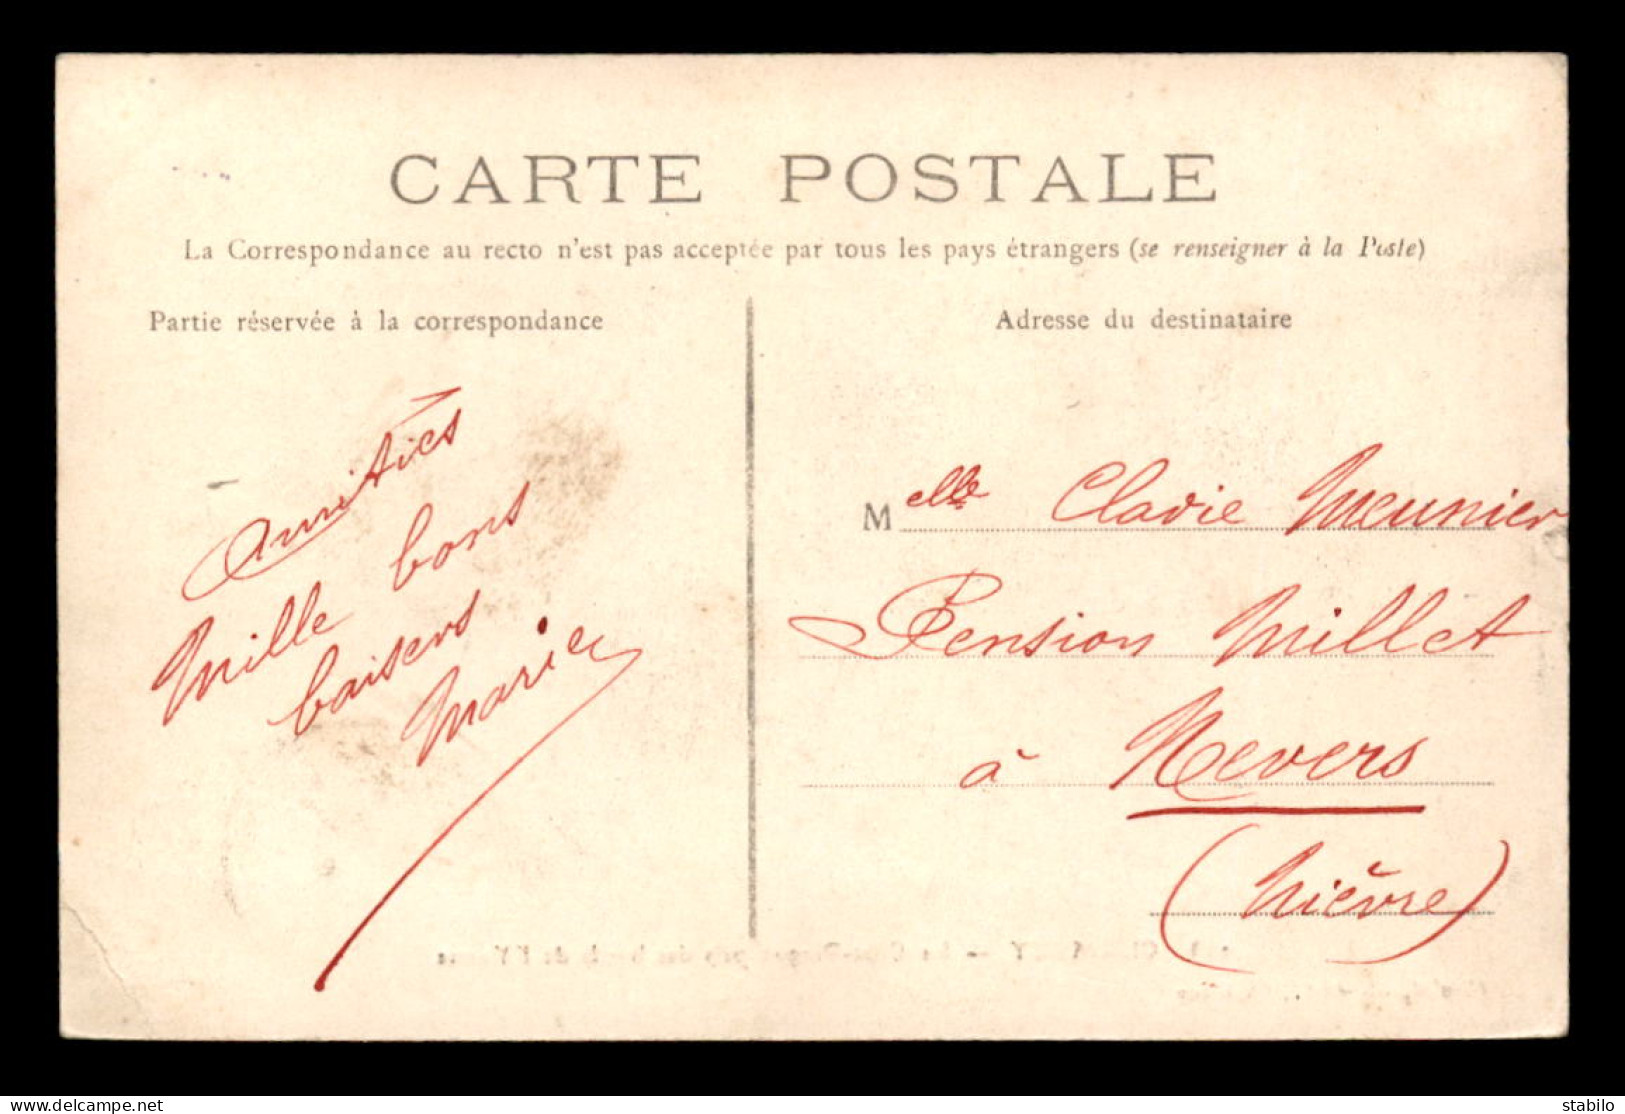 CARTE POSTALE
La Correspondance au recto n'est pas acceptée par tous les pays étrangers (se renseigner à la Poste)
Partie réservée à la correspondance
Adresse du destinataire
Amitiés
Mille bons
baisers
Marie
Melle Clavie Meunier
Pension Millet
à Nevers
(Nièvre)
www.delcampe.net
stabilo